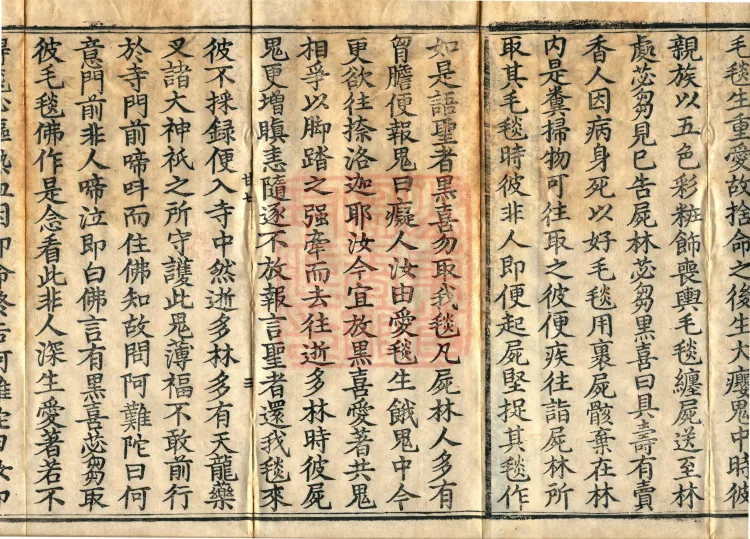 毛毯生重愛故捨命之後生大癭鬼中時彼
親族以五色彩粧飾喪輿毛毯纏屍送至林
處苾芻見已告屍林苾芻黑喜曰具壽有賣
香人因病身死以好毛毯用裹屍骸棄在林
内是糞掃物可往取之彼便疾往詣屍林所
取其毛毯時彼非人即便起屍堅捉其毯作
如是語聖者黑喜勿取我毯凡屍林人多有
胷膽便報鬼曰癡人汝由愛毯生餓鬼中今
更欲往捺洛迦耶汝今宜放黑喜愛著共鬼
相爭以脚踏之强牽而去往逝多林時彼屍
鬼更增瞋恚隨逐不放報言聖者還我毯來
廿七 三
彼不採録便入寺中然逝多林多有天龍藥
叉諸大神祇之所守護此鬼薄福不敢前行
於寺門前啼呌而住佛知故問阿難陀曰何
意門前非人啼泣即白佛言有黑喜苾芻取
彼毛毯佛作是念看此非人深生愛著若不